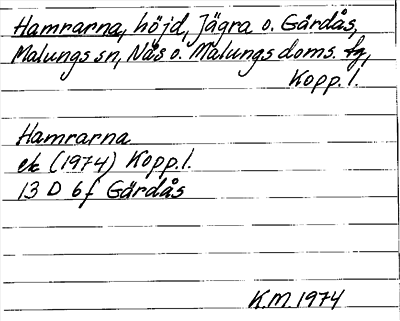 Hamrarna, höjd, Jägra o. Gärdås,
Malungs sn, Nås o. Malungs doms. fg,
Kopp. l.
Hamrarna
ek (1974) Kopp. l.
13 D 6 f Gärdås
K.M. 1974